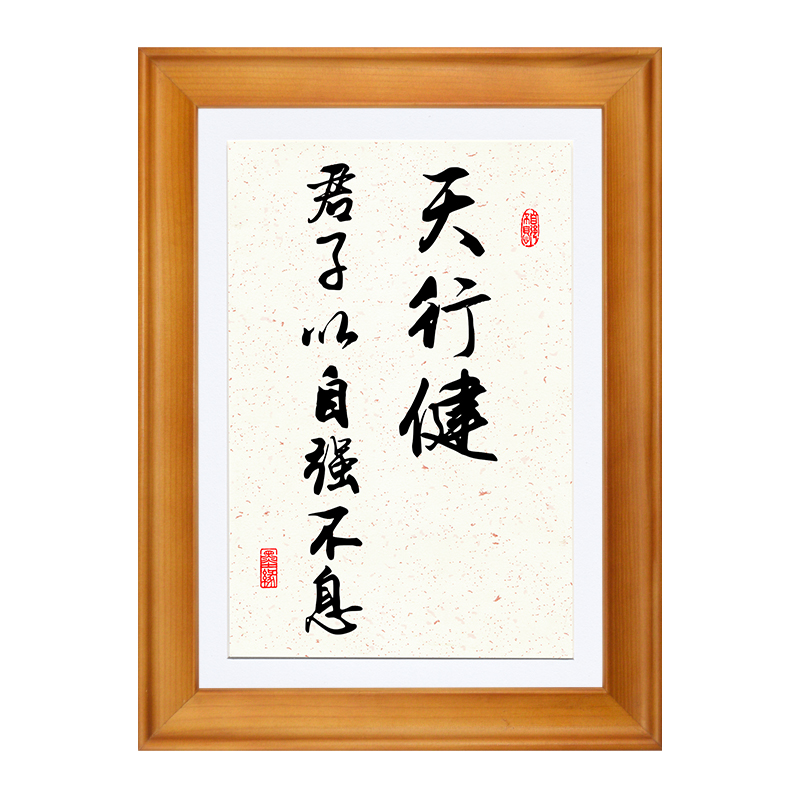 天行健
君子以自强不息
墨缘